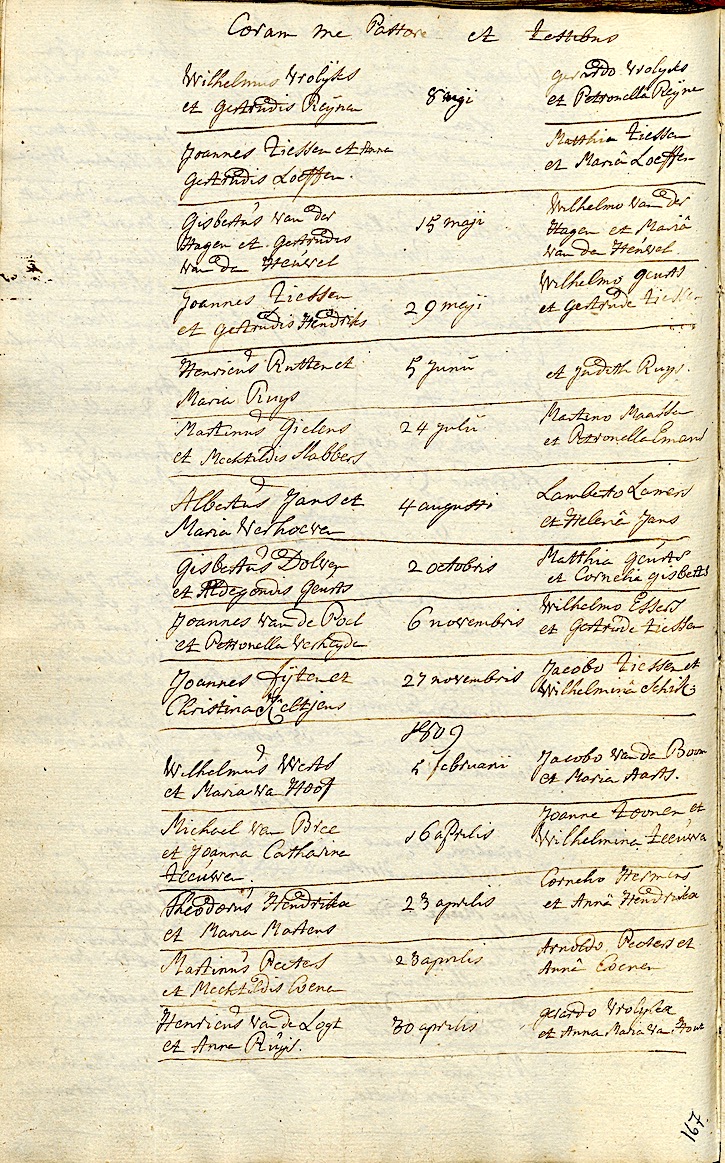 Coram me Pastore et testibus
Wilhelmus Vrolijks
et Gertrudis Reijnen
8 meji
gerardo Vrolijks
et Petronella Reijne
Joannes Tiessen et Anna
Gertrudis Loeffen.
Matthia Tiessen
et Mariâ Loeffen
Gisbertus van der
Hagen et Gertrudis
van den Heuvel
15 maji
Wilhelmo van der
Hagen et Mariâ
van den Heuvel
Joannes Tiessen
et Gertrudis Hendriks
29 meji
Wilhelmo Geurts
et Gertrude Tiessen
Henricus Rutten et
Maria Ruys
5 Junii
et Judith Ruys.
Martinus Gielens
et Mechtildis Slabbers
24 julii
Martino Maassen
et Petronella Emans
Albertus Jans et
Maria Verhoeven
4 augusti
Lamberto Lamers
et Helenâ Jans
Gisbertus Dolven
et Aldegondis Geurts
2 octobris
Matthia Geurts
et Cornelia gisberts
Joannes van de Poel
et Petronella Verheyden
6 novembris
Wilhelmo Essers
et Gertrude Tiessen
Joannes
et
Christina
27 novembris
Jacobo Tiessen et
Wilhelminâ
1809
Wilhelmus Werts
et Maria va Hoof
5 februarii
Jacobo van den Boom
et Maria Aarts.
Michael van Bree
et Joanna Catharina
Leeuwen.
16 aprilis
Joanne Toonen et
Wilhelmina Leeuwen
Theodorus Hendriks
et Maria Martens
23 aprilis
Cornelio Hermens
et Annâ Hendriks
Martinus Peeters
et Mechtildis Coenen
23 aprilis
Arnoldo Peeters et
Annâ Coenen
Henricus van de Logt
et Anna Ruijs.
30 aprilis
gerardo Vrolijks
et Anna Maria van Hout
167